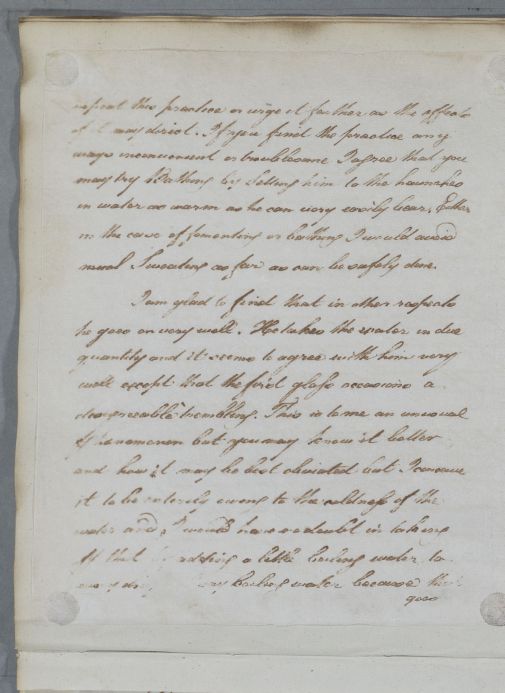 repeat this practice or urge it farther as the effects
of it may direct. If you find the practice any
ways inconvenient or troublesome I agree that you
may try Bathing by setting him to the haunches
in water as warm as he can very easily bear. Either
in the case of fomenting or bathing I would avoid
much Sweating as far as can be safely done.
I am glad to find that in other respects
he goes on very well. He takes the water in due
quantity and it seems to agree with him very
well except that the first glass occasions a
disagreeable trembling. This is to me an unusual
Phenomenon but you may know it better
and how it may be best obviated but I conceive
it to be entirely owing to the coldness of the
water and I would have no doubt in taking
off that by adding a little boiling water to
every boiling water because this
goes